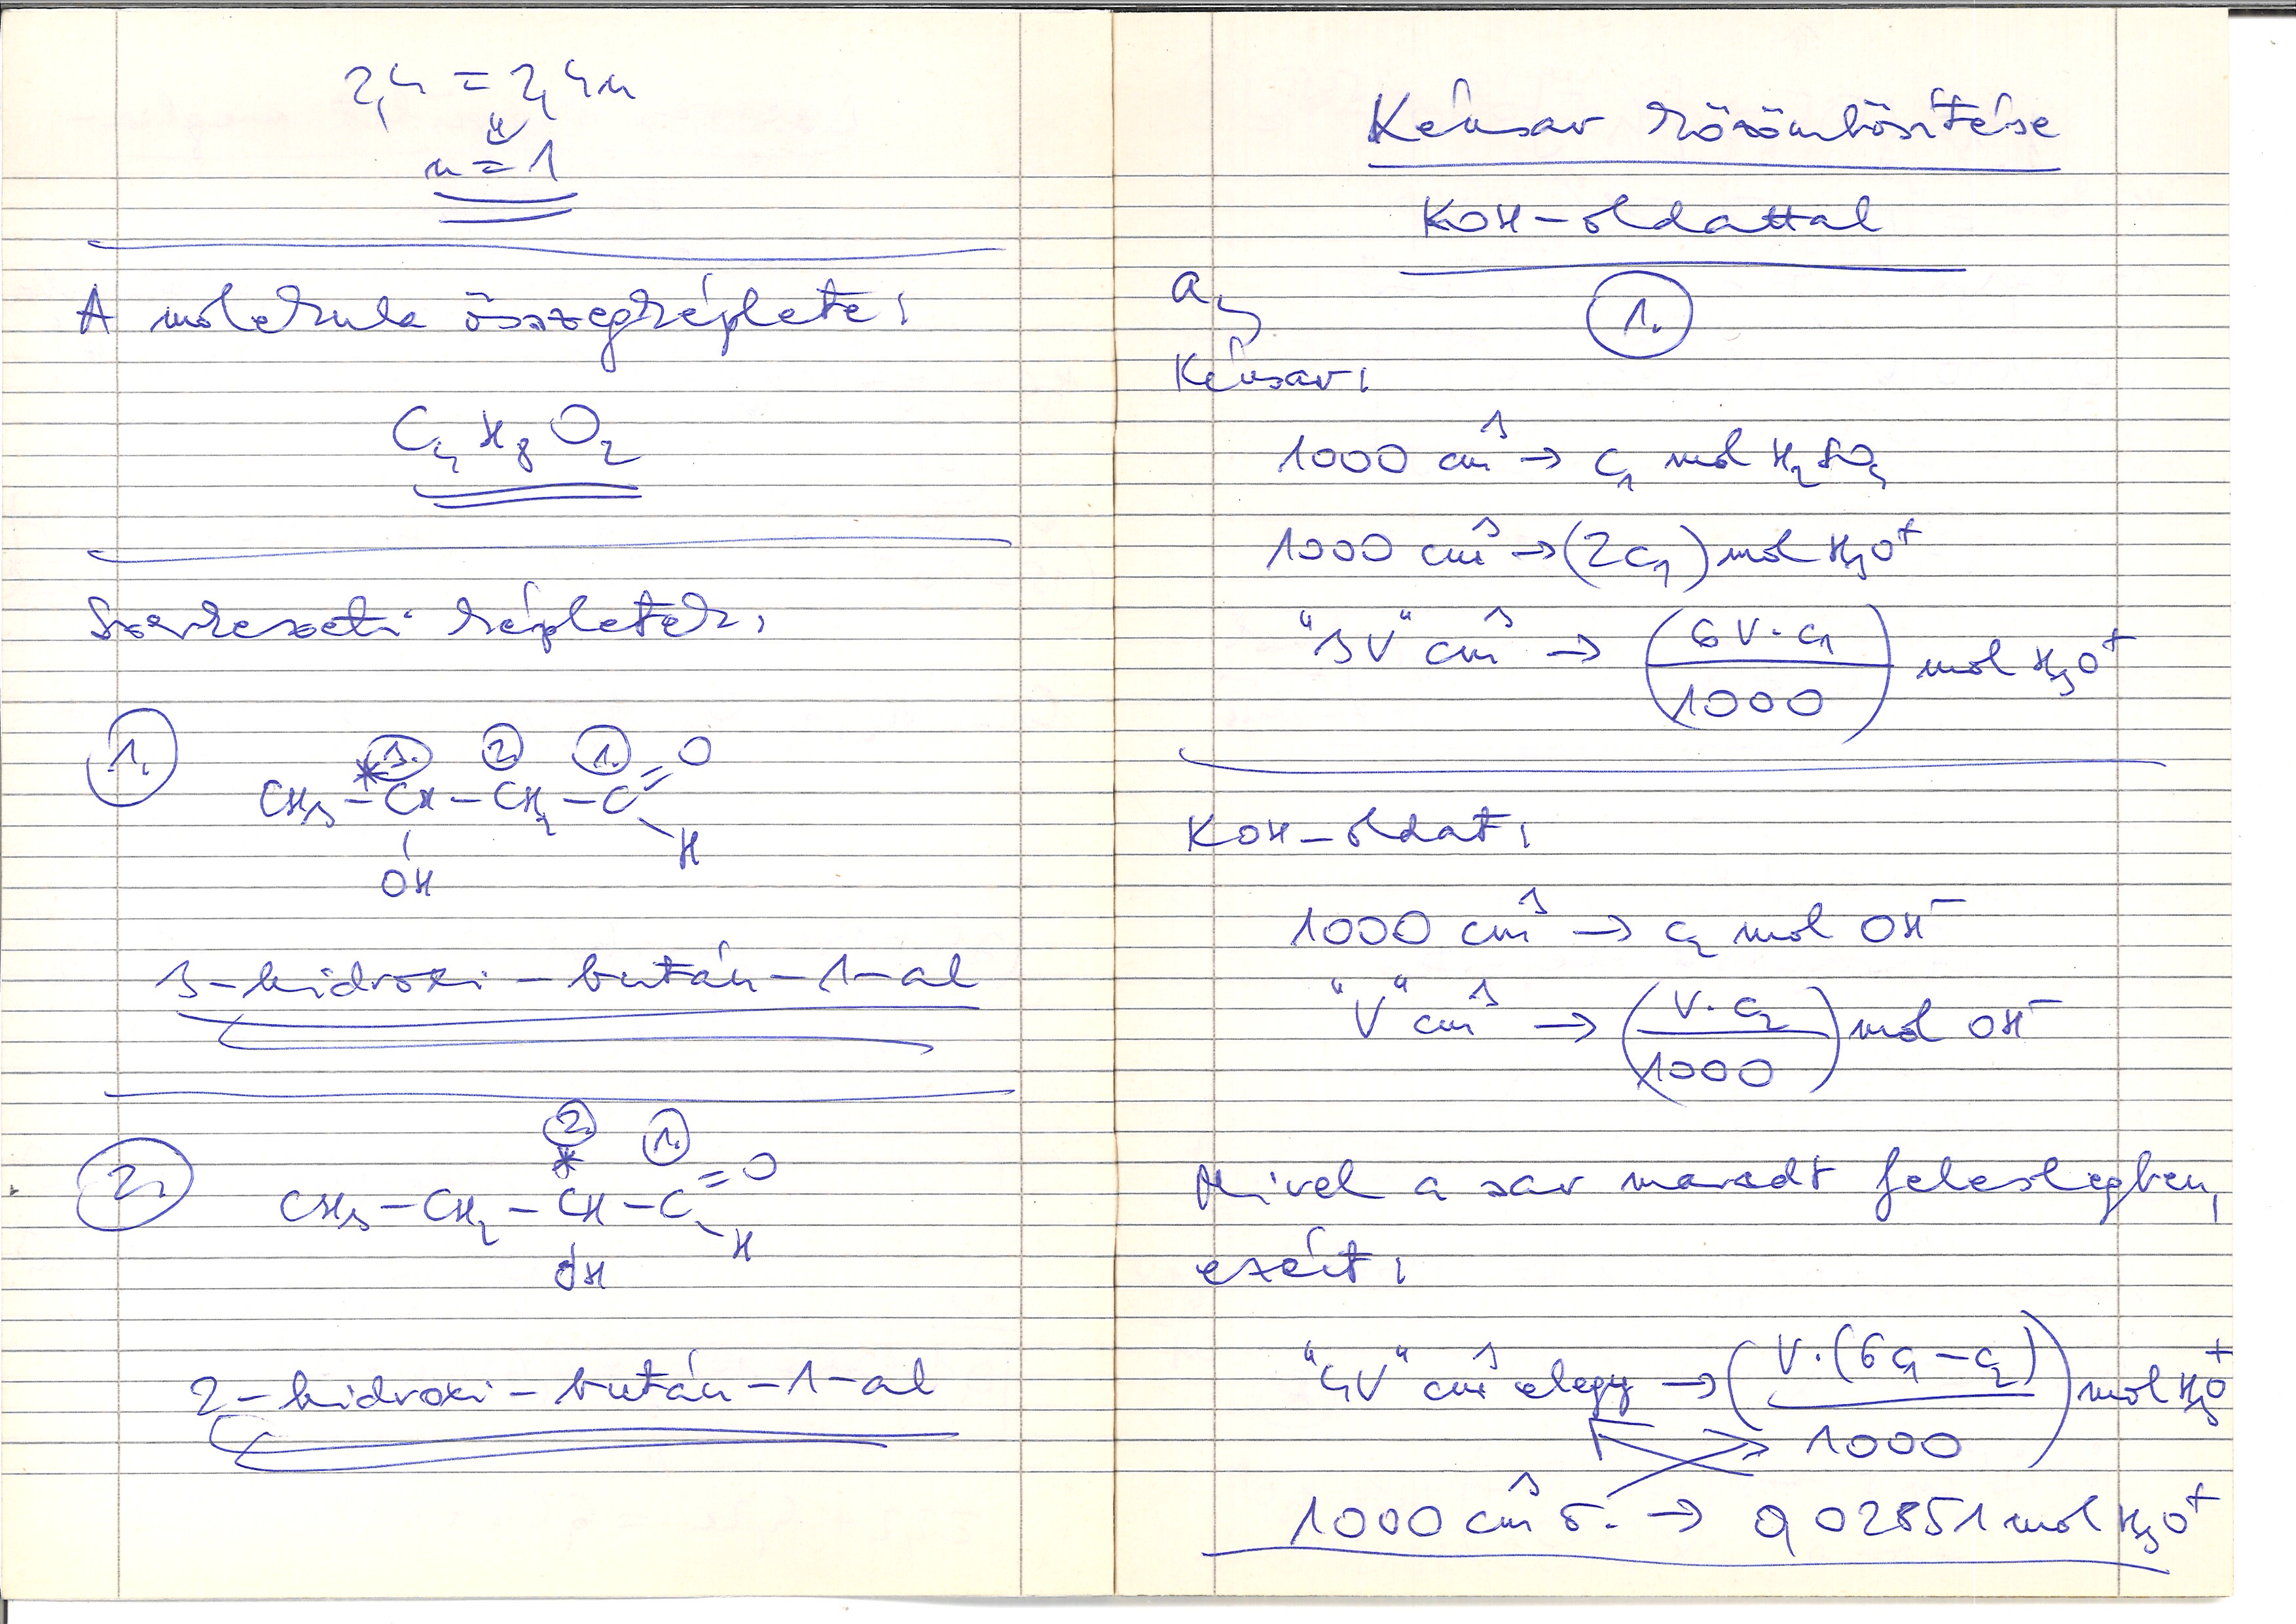 2,4 = 2,4n
⇓
n = 1
A molekula összegképlete:
C₄H₈O₂
Szerkezeti képletek:
1.
3. 2. 1. O
CH₃ – *CH – CH₂ – C
OH H
3-hidroxi-bután-1-al
2. 1.
2. * O
CH₃ – CH₂ – CH – C
OH H
2-hidroxi-bután-1-al
Kénsav közömbösítése
KOH-oldattal
a, 1.
Kénsav:
1000 cm³ → c₁ mol H₂SO₄
1000 cm³ → (2c₁) mol H₃O⁺
"3V" cm³ → (6V·c₁ / 1000) mol H₃O⁺
KOH-oldat:
1000 cm³ → c₂ mol OH⁻
"V" cm³ → (V·c₂ / 1000) mol OH⁻
Mivel a sav maradt feleslegben,
ezért:
"4V" cm³ elegy → (V·(6c₁ – c₂) / 1000) mol H₃O⁺
1000 cm³ → 0,02851 mol H₃O⁺